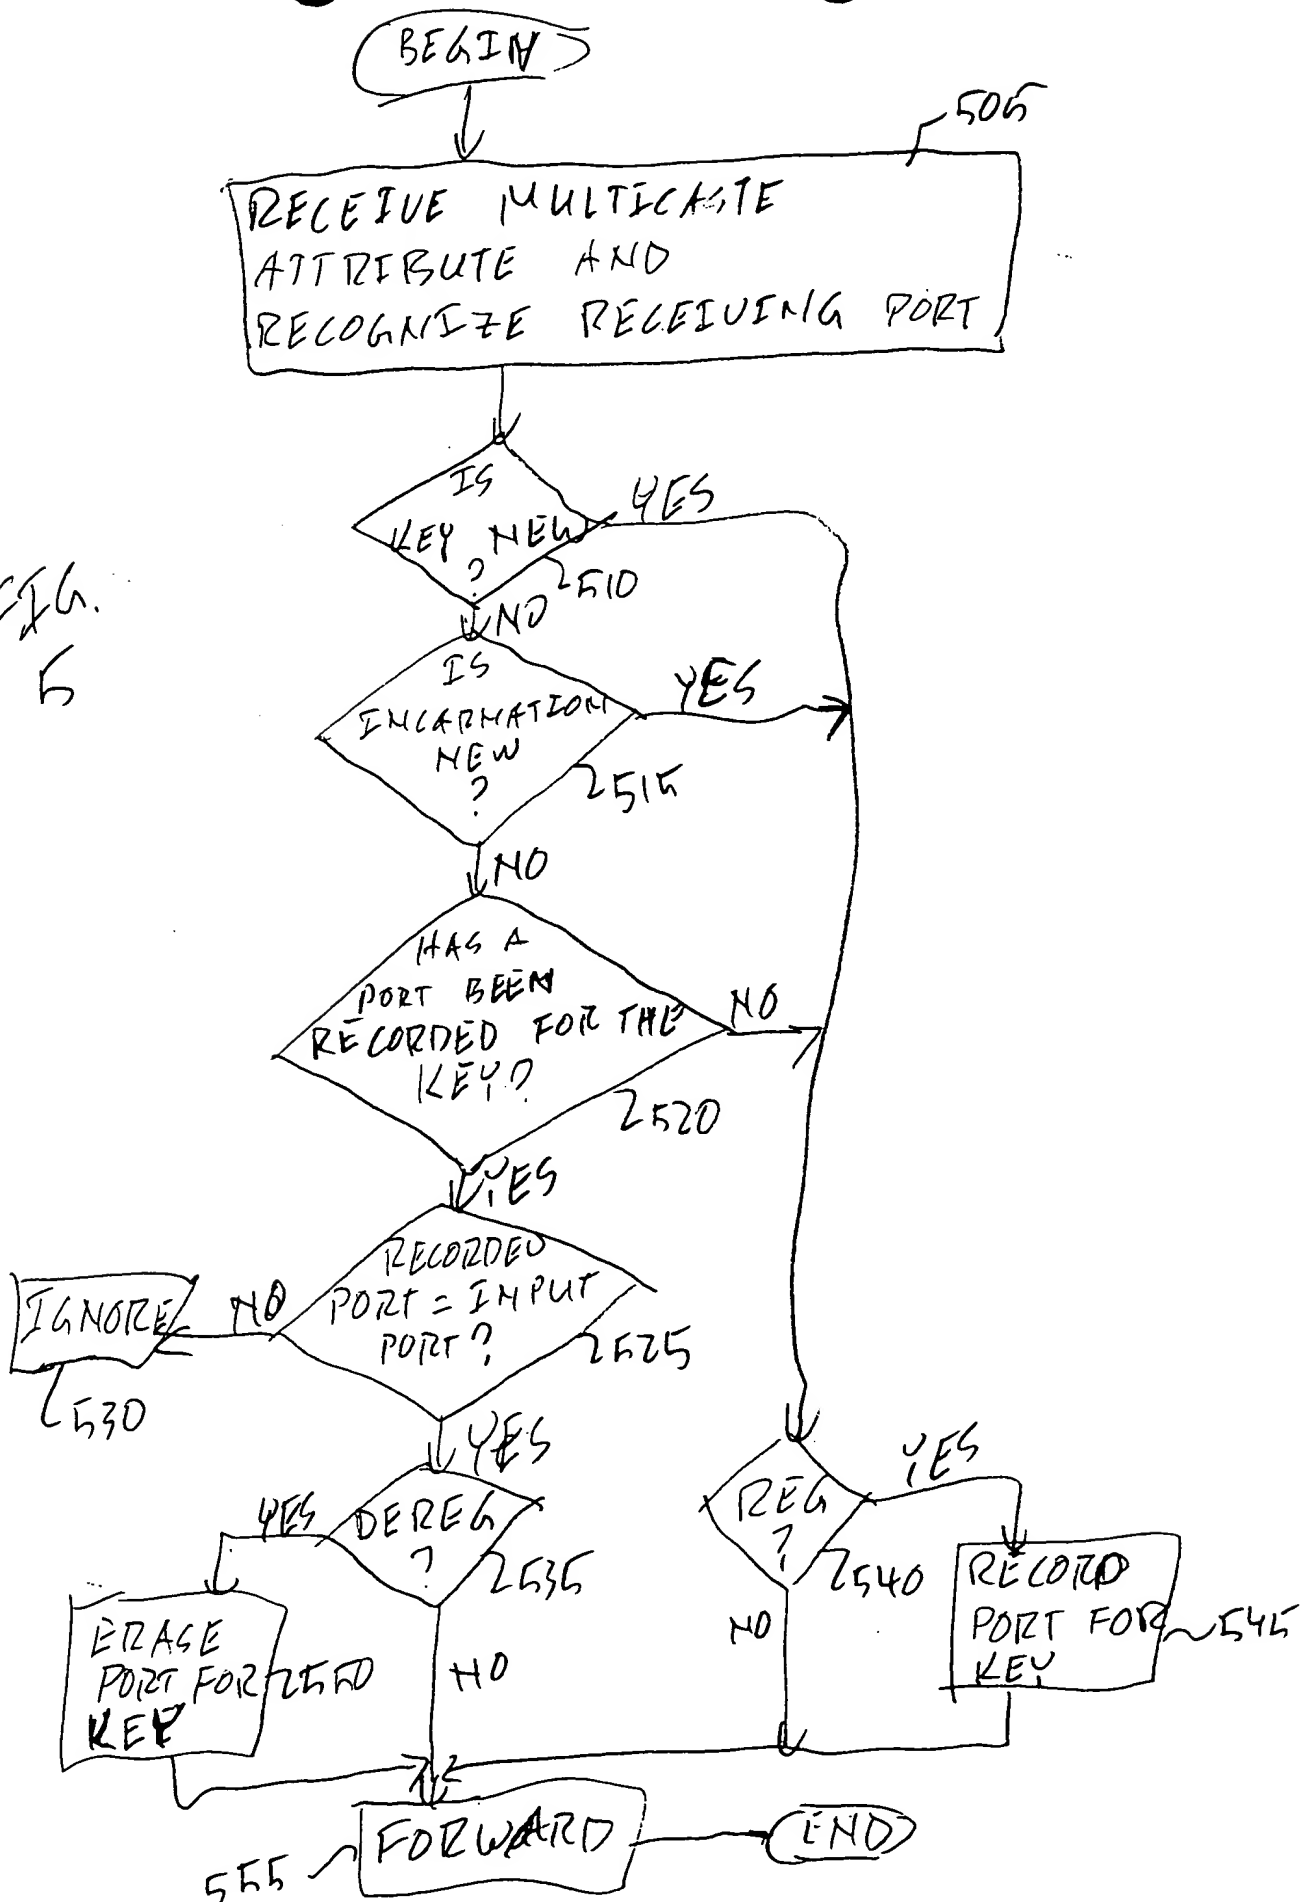 BEGIN
505
RECEIVE MULTICASTE
ATTRIBUTE AND
RECOGNIZE RECEIVING PORT
IS
KEY NEW
?
YES
510
NO
FIG.
5
IS
INCARNATION
NEW
?
YES
515
NO
HAS A
PORT BEEN
RECORDED FOR THE
KEY?
NO
520
YES
RECORDED
PORT = INPUT
PORT?
525
NO
IGNORE
530
YES
DEREG
?
535
YES
REG
?
540
YES
RECORD
PORT FOR
KEY
545
ERASE
PORT FOR
KEY
550
NO
NO
FORWARD
555
END